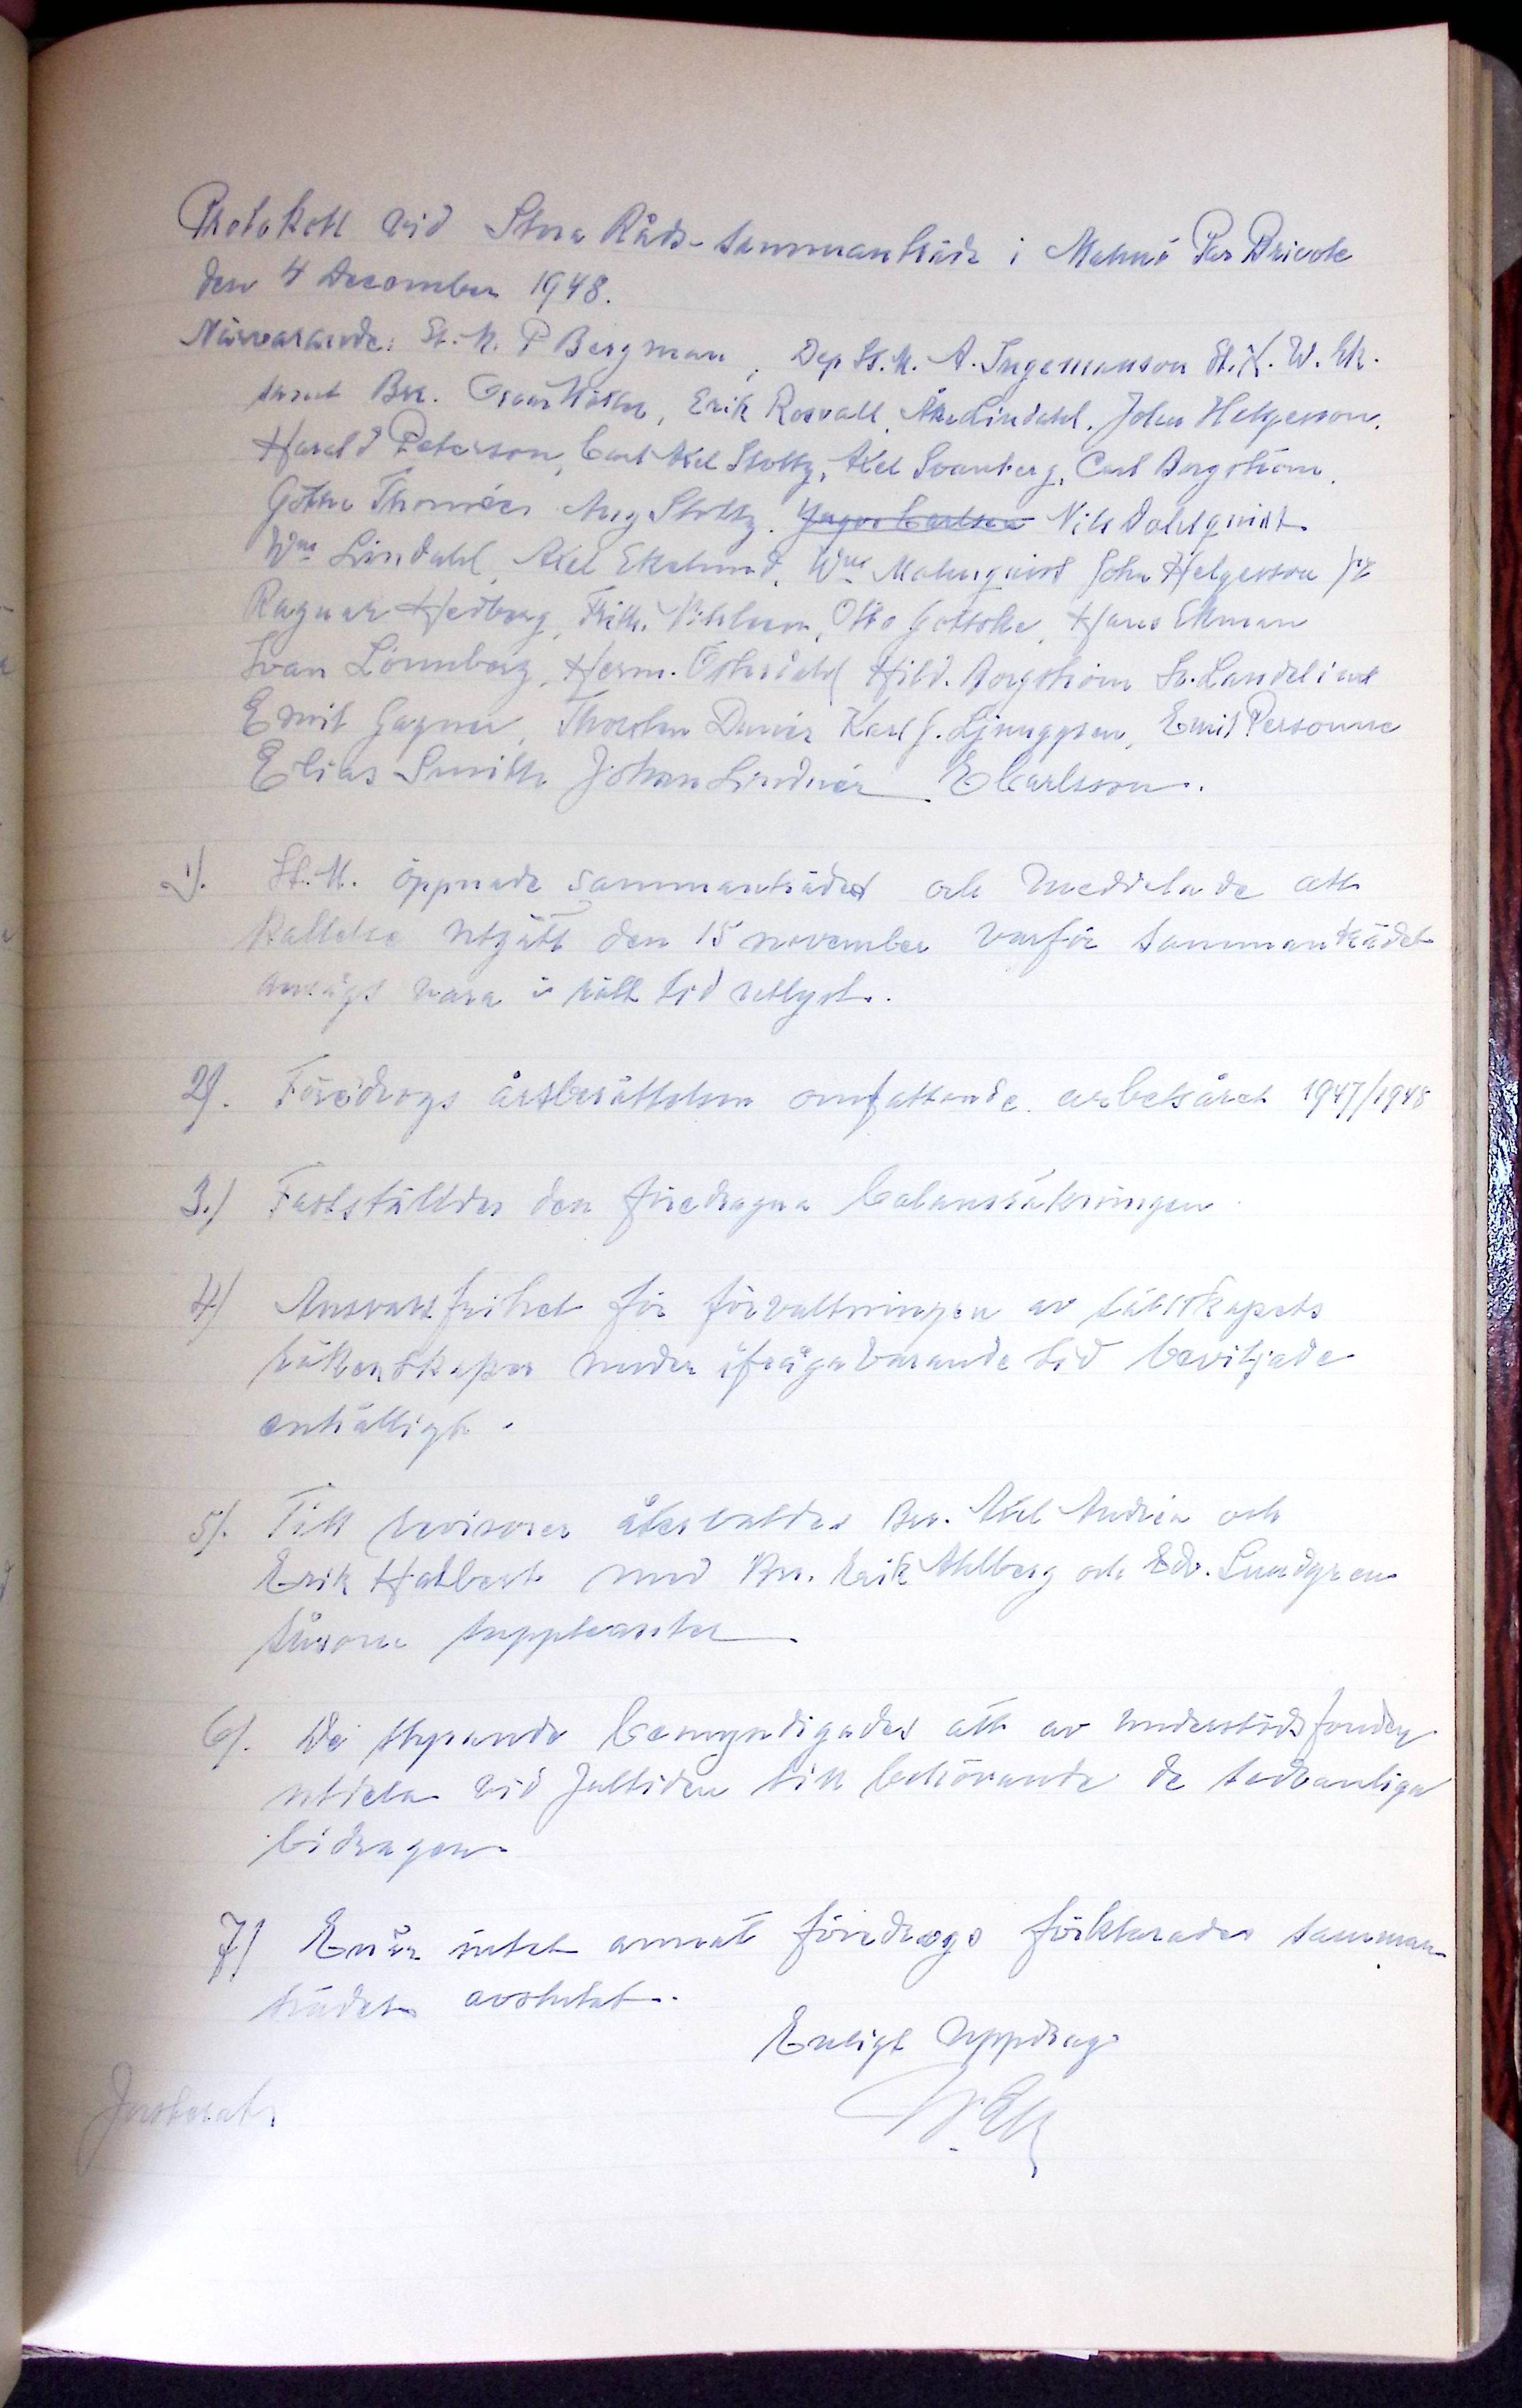 Protokoll vid Stora Råds-sammanträde i Malmö Par Bricole
den 4 December 1948.
Närvarande: St. M. P Bergman, Dep St. M. A. Ingemanson St. K. W. Ek.
samt Brr. Erik Rosvall, Åke Lindahl, John Helgesson,
Harald Peterson, Carl Axel Stoltz, Axel Svanberg, Carl Borgström,
Gösta Thornéus Aug Stoltz. Yngve Carlson Nils Dahlquist
Wm Lindahl, Axel Ekelund, Wm Malmquist John Helgesson jr
Ragnar Hedberg, Frith. Nihleen, Otto Gottsche, Hans Ekman
Ivan Lönnberg, Herm. Österdahl Hild. Borgström Sv. Landelius
Emil Gagner, Thorsten Karl G. Ljunggren, Emil Personne
Elias Smith Johan Lindnér E Carlsson.
1). St. M. öppnade sammanträdet och meddelade att
kallelse utgått den 15 november varför sammanträdet
ansågs vara i rätt tid utlyst.
2). Föredrogs årsberättelsen omfattande arbetsåret 1947/1948
3.) Fastställdes den föredragna balansräkningen
4) Ansvarsfrihet för förvaltningen av sällskapets
räkenskaper under ifrågavarande tid beviljade
enhälligt.
5). Till revisorer återvaldes Brr. Axel Andrén och
Erik Hallbert med Brr. Erik Ahlberg och Edv. Lundgren
såsom suppleanter
6). De styrande bemyndigades att av understödsfonden
utdela vid Jultiden till behövande de sedvanliga
bidragen.
7) Enär intet annat föredrogs förklarades samman-
trädet avslutat.
Enligt uppdrag
W. Ek
Justerat